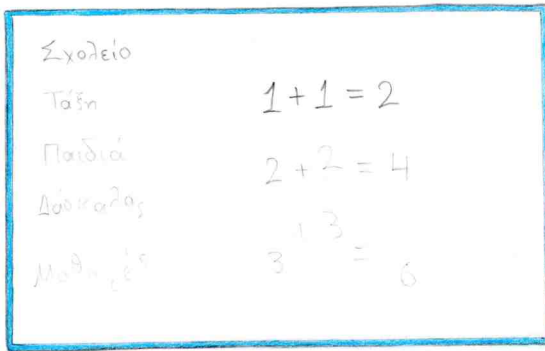 Σχολείο
Τάξη
Παιδιά
Δάσκαλος
1 + 1 = 2
2 + 2 = 4
3 + 3 = 6